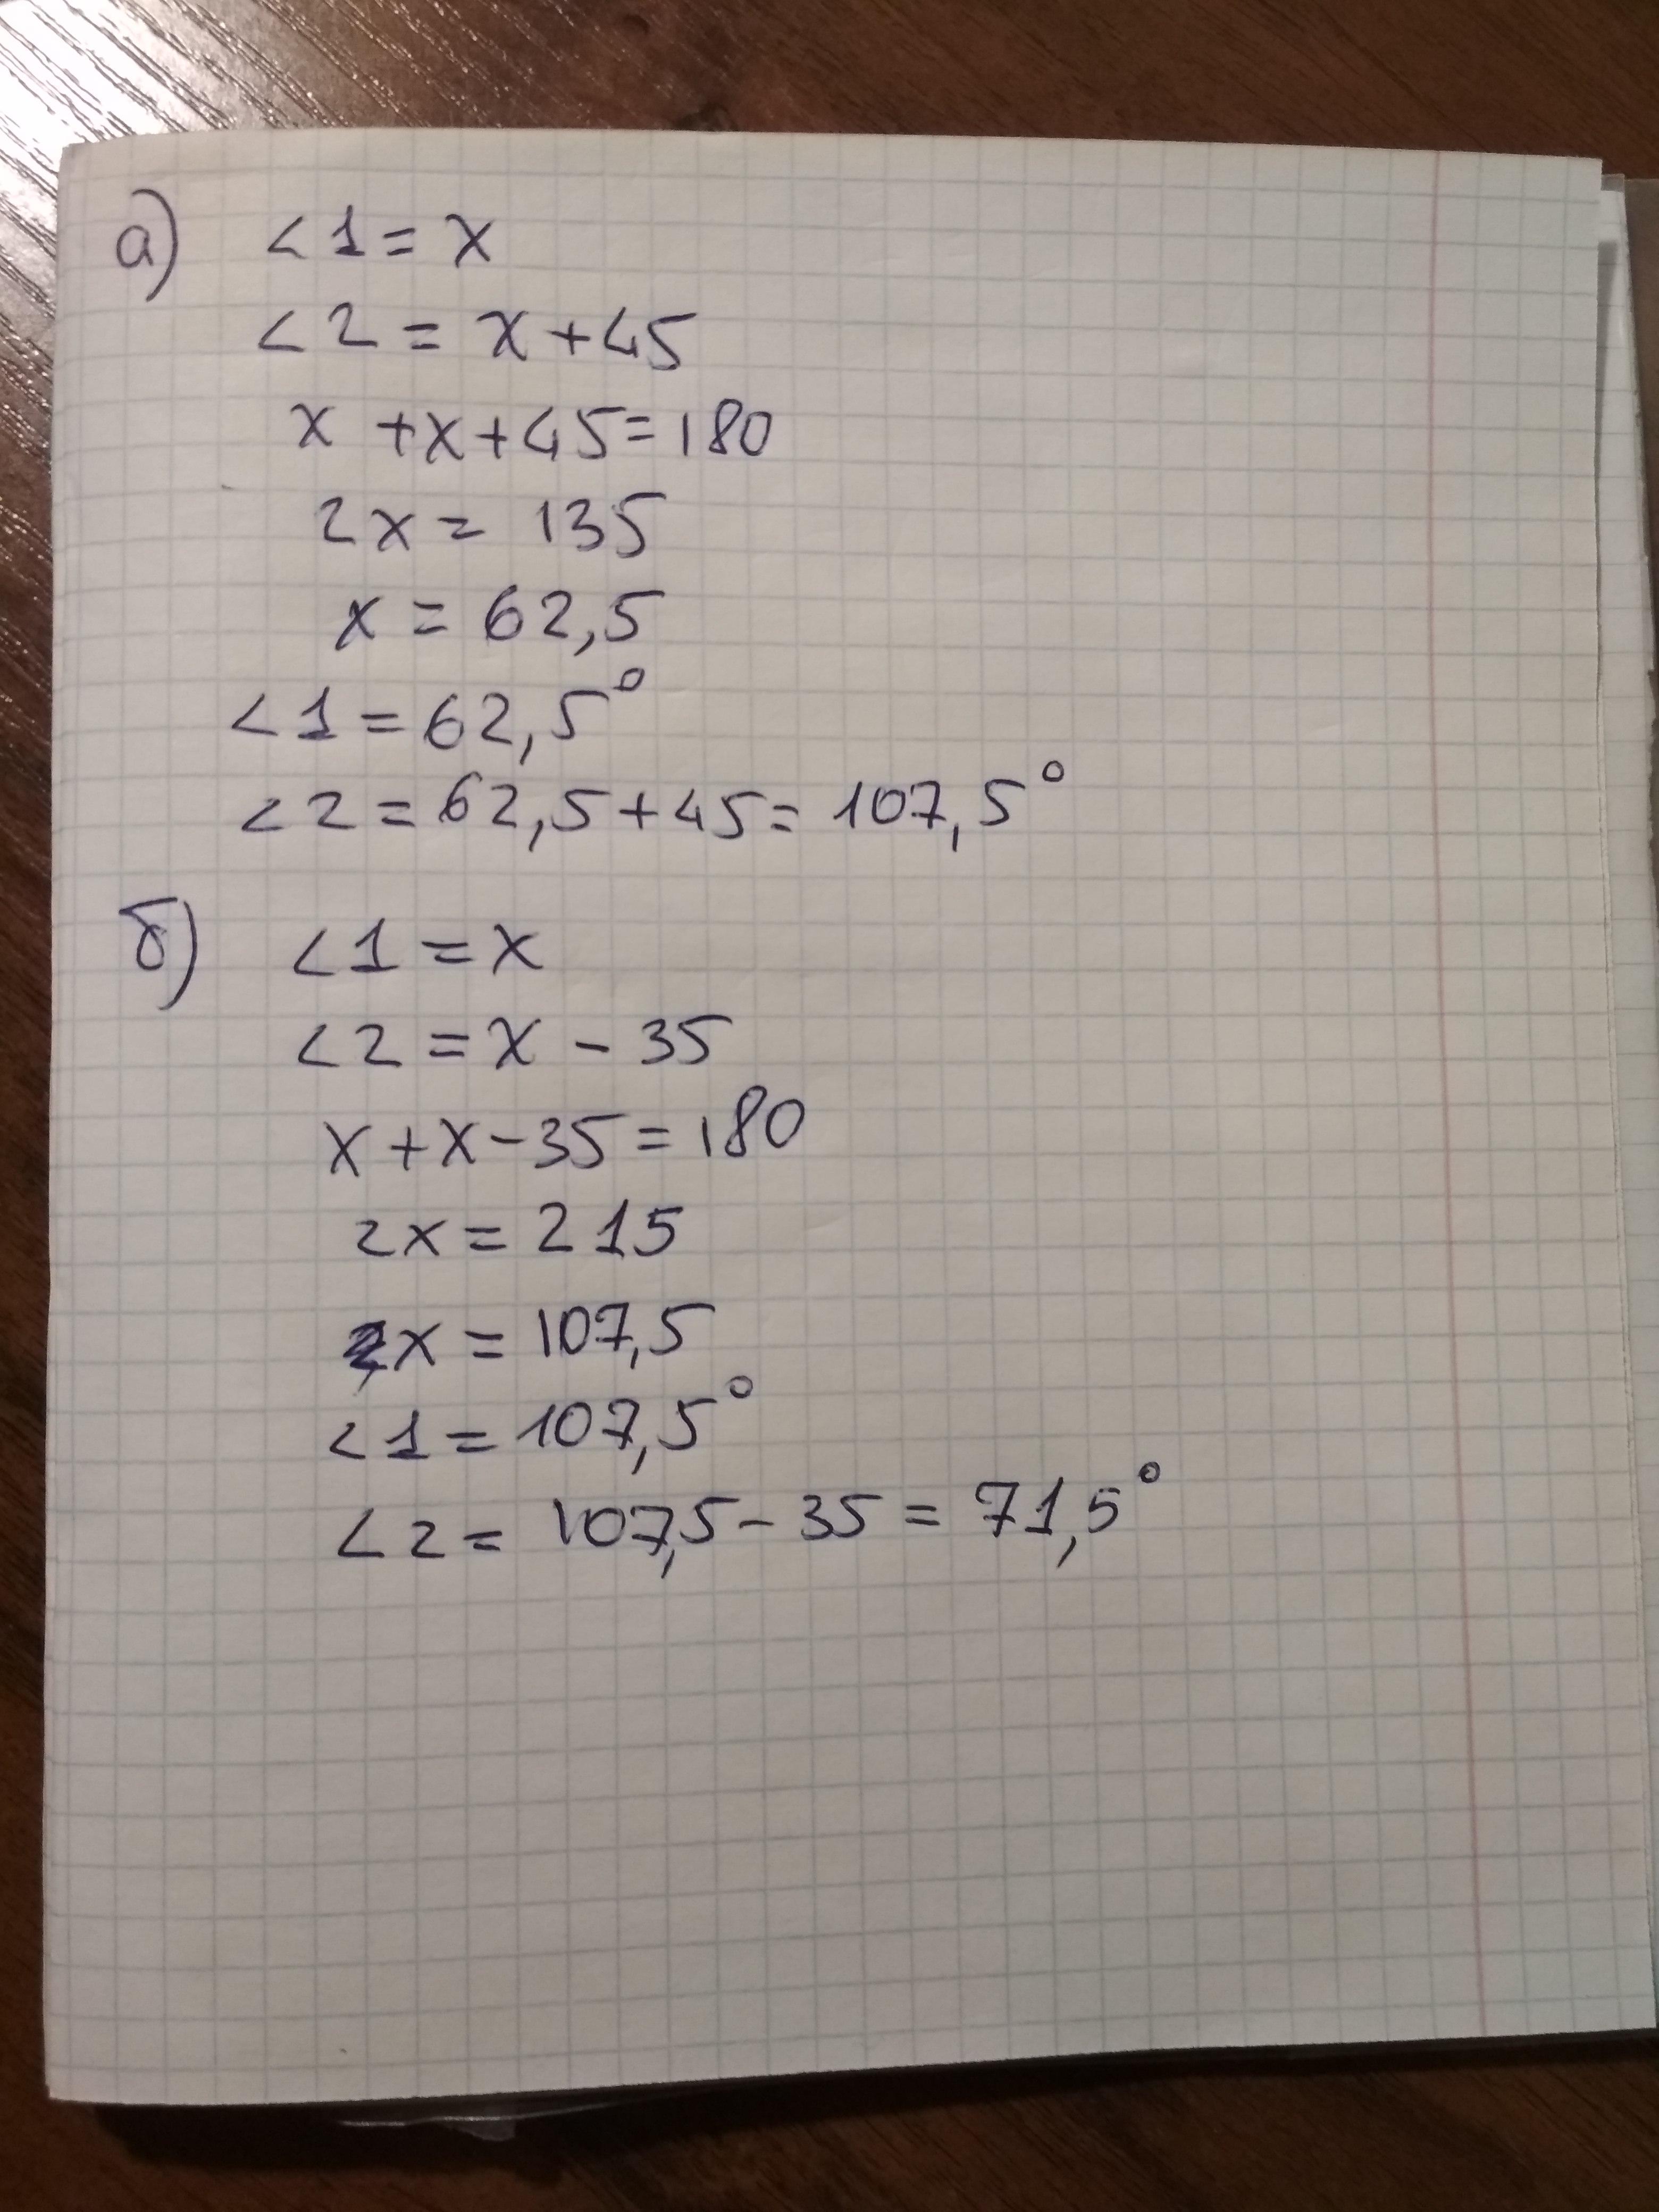 а) <1 = x
<2 = x + 45
x + x + 45 = 180
2x = 135
x = 62,5
<1 = 62,5°
<2 = 62,5 + 45 = 107,5°
б) <1 = x
<2 = x - 35
x + x - 35 = 180
2x = 215
x = 107,5
<1 = 107,5°
<2 = 107,5 - 35 = 71,5°